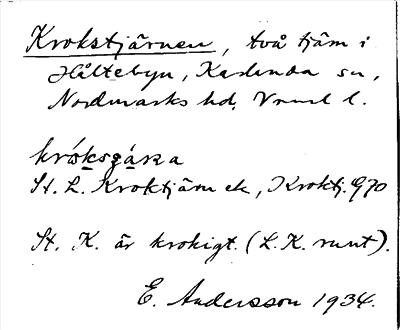 Krokstjärnen, två tjärn i
Håltebyn, Karlanda sn,
Nordmarks hd, Vrml l.
St. L. Kroktjärn ek, Kroktj. 970
St. K. är krokigt. (L. K. runt).
E. Andersson 1934.